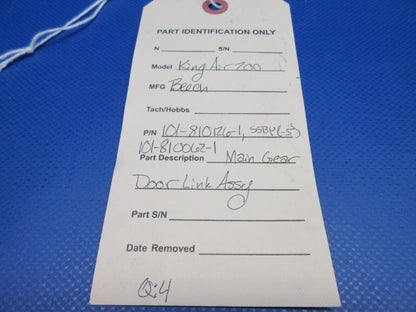 PART IDENTIFICATION ONLY
N S/N
Model King Air 200
MFG Beech
Tach/Hobbs
P/N 101-810126-1, SSBY(-5)
101-810062-1
Part Description Main Gear
Door Link Assy
Part S/N
Date Removed
Q:4